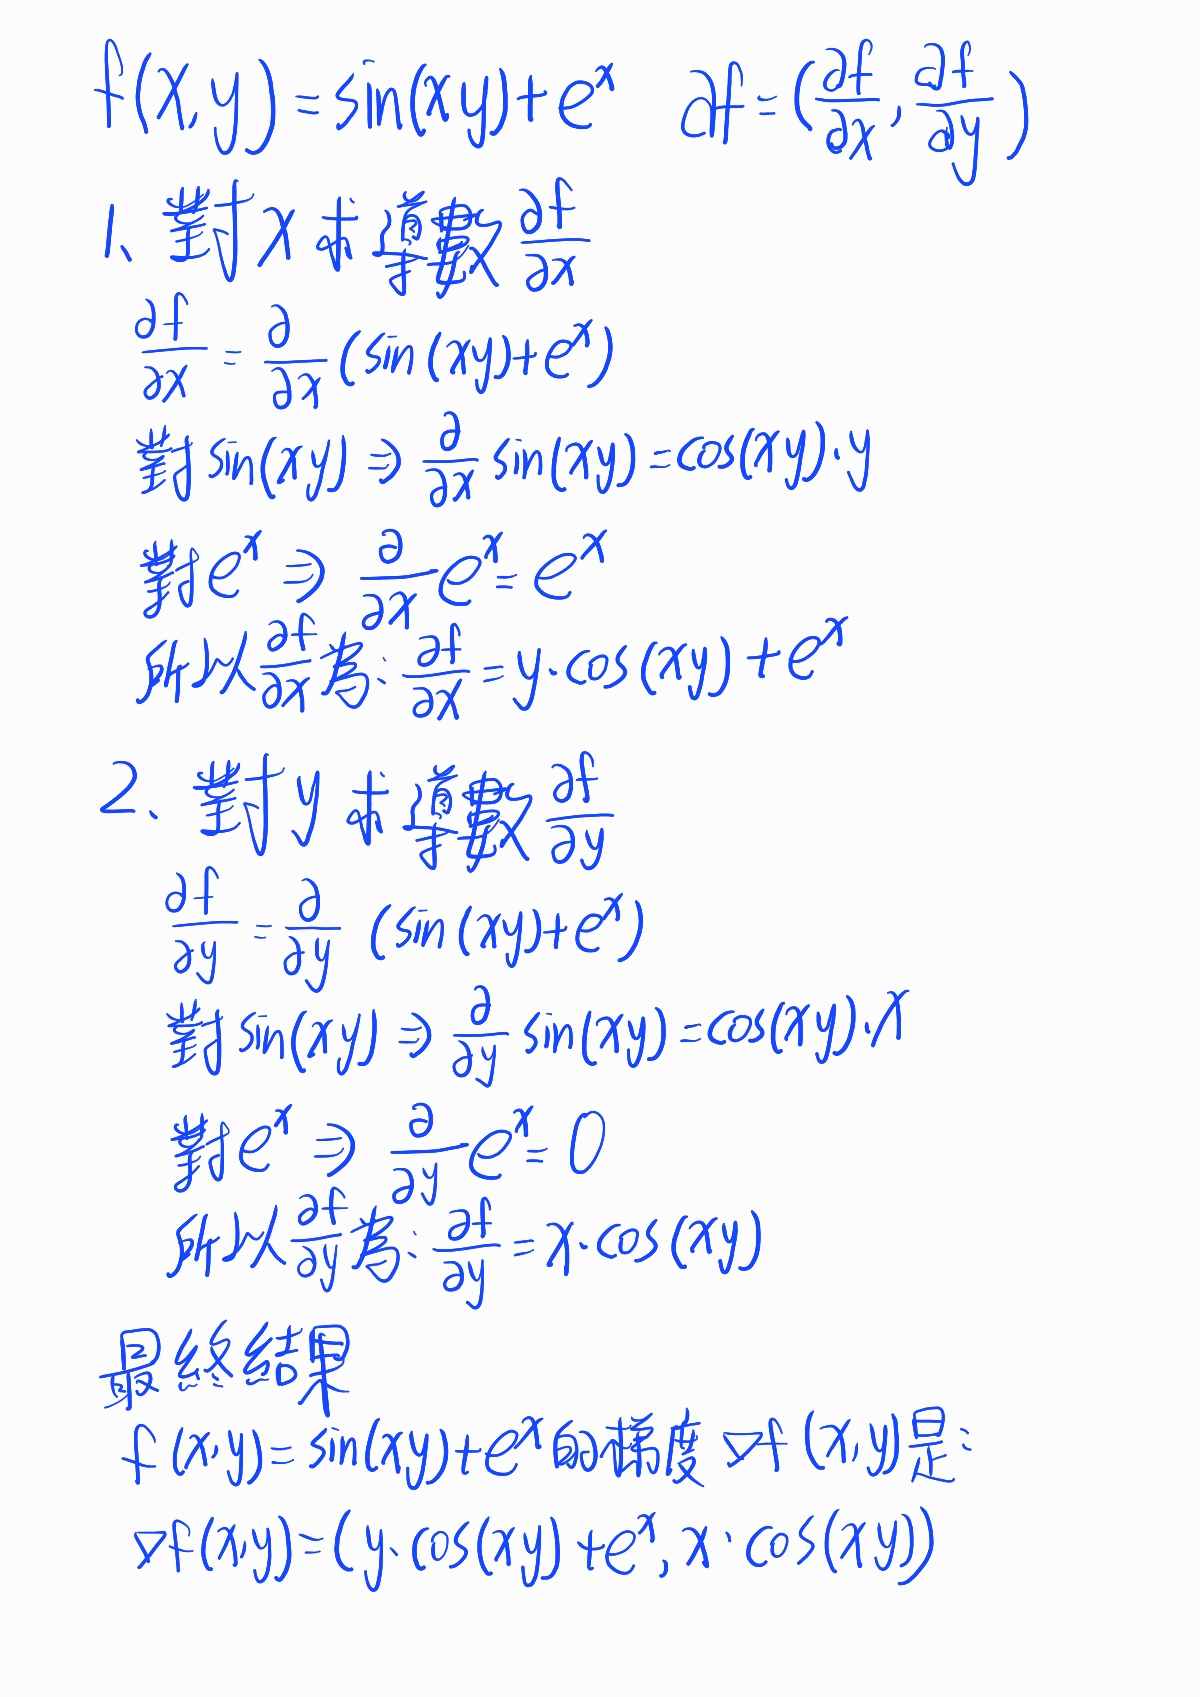 f(x,y)=sin(xy)+e^x  ∂f=(∂f/∂x, ∂f/∂y)
1、對x求導數 ∂f/∂x
∂f/∂x = ∂/∂x (sin(xy)+e^x)
對sin(xy) ⇒ ∂/∂x sin(xy)=cos(xy)·y
對e^x ⇒ ∂/∂x e^x = e^x
所以 ∂f/∂x 為: ∂f/∂x = y·cos(xy)+e^x
2、對y求導數 ∂f/∂y
∂f/∂y = ∂/∂y (sin(xy)+e^x)
對sin(xy) ⇒ ∂/∂y sin(xy)=cos(xy)·x
對e^x ⇒ ∂/∂y e^x = 0
所以 ∂f/∂y 為: ∂f/∂y = x·cos(xy)
最終結果
f(x,y)=sin(xy)+e^x的梯度 ∇f(x,y)是:
∇f(x,y)=(y·cos(xy)+e^x, x·cos(xy))